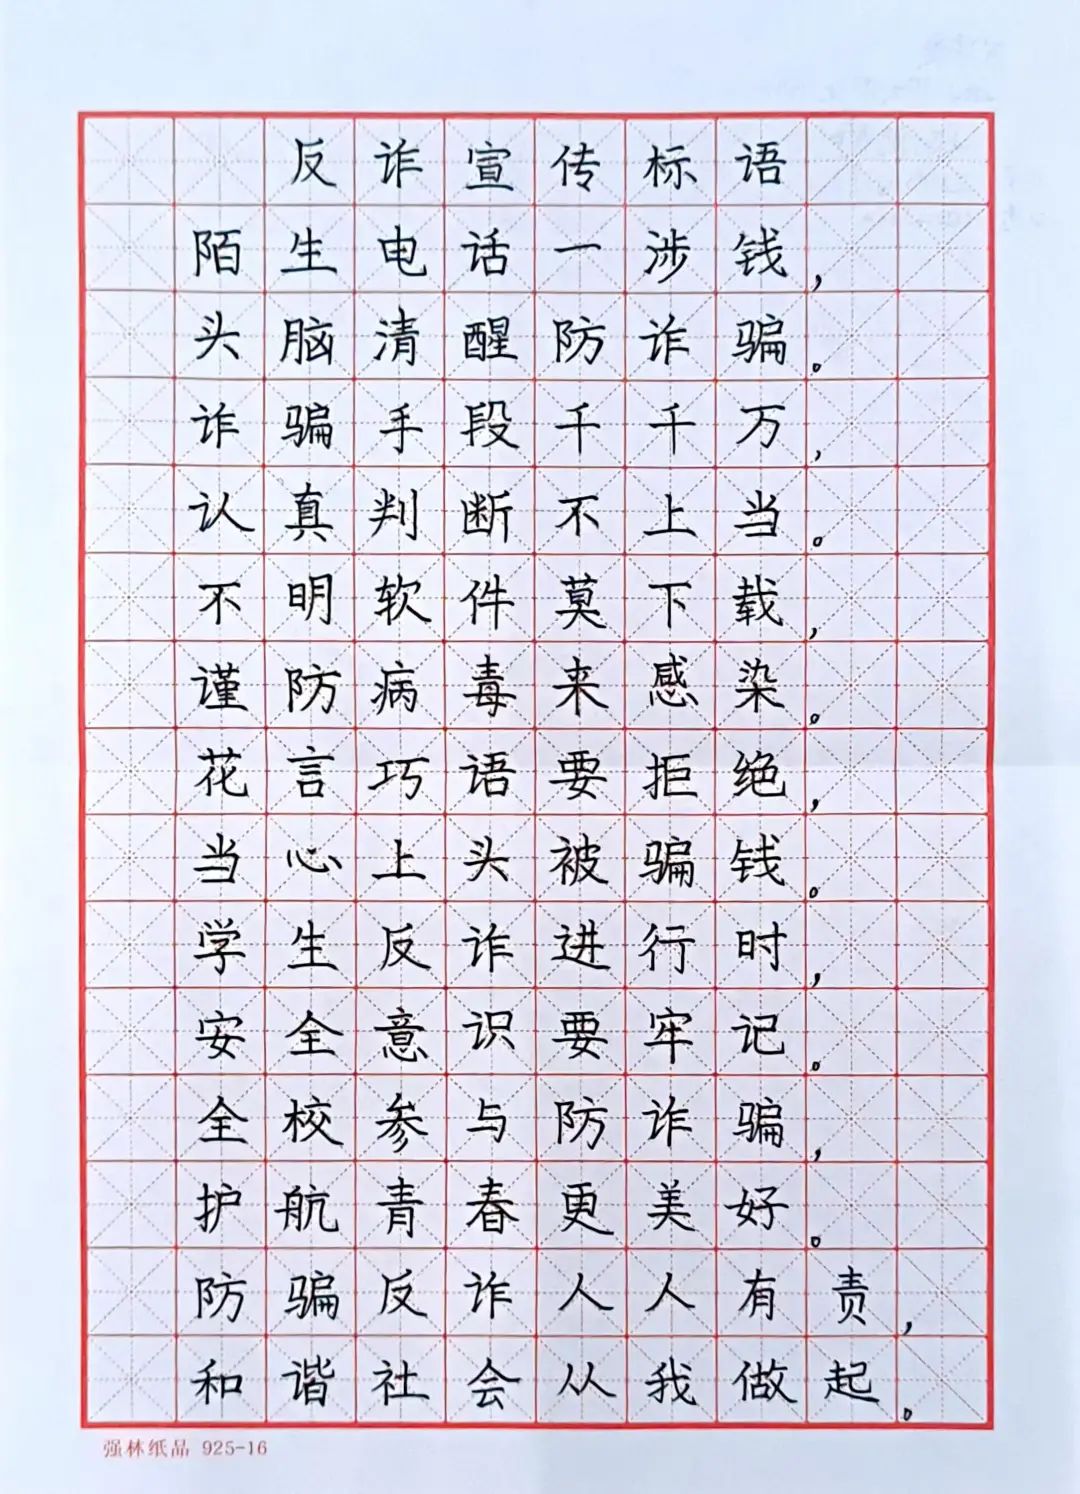 反诈宣传标语
陌生电话一涉钱，
头脑清醒防诈骗。
诈骗手段千千万，
认真判断不上当。
不明软件莫下载，
谨防病毒来感染。
花言巧语要拒绝，
当心上头被骗钱。
学生反诈进行时，
安全意识要牢记。
全校参与防诈骗，
护航青春更美好。
防骗反诈人人有责，
和谐社会从我做起。
强林纸品 925-16